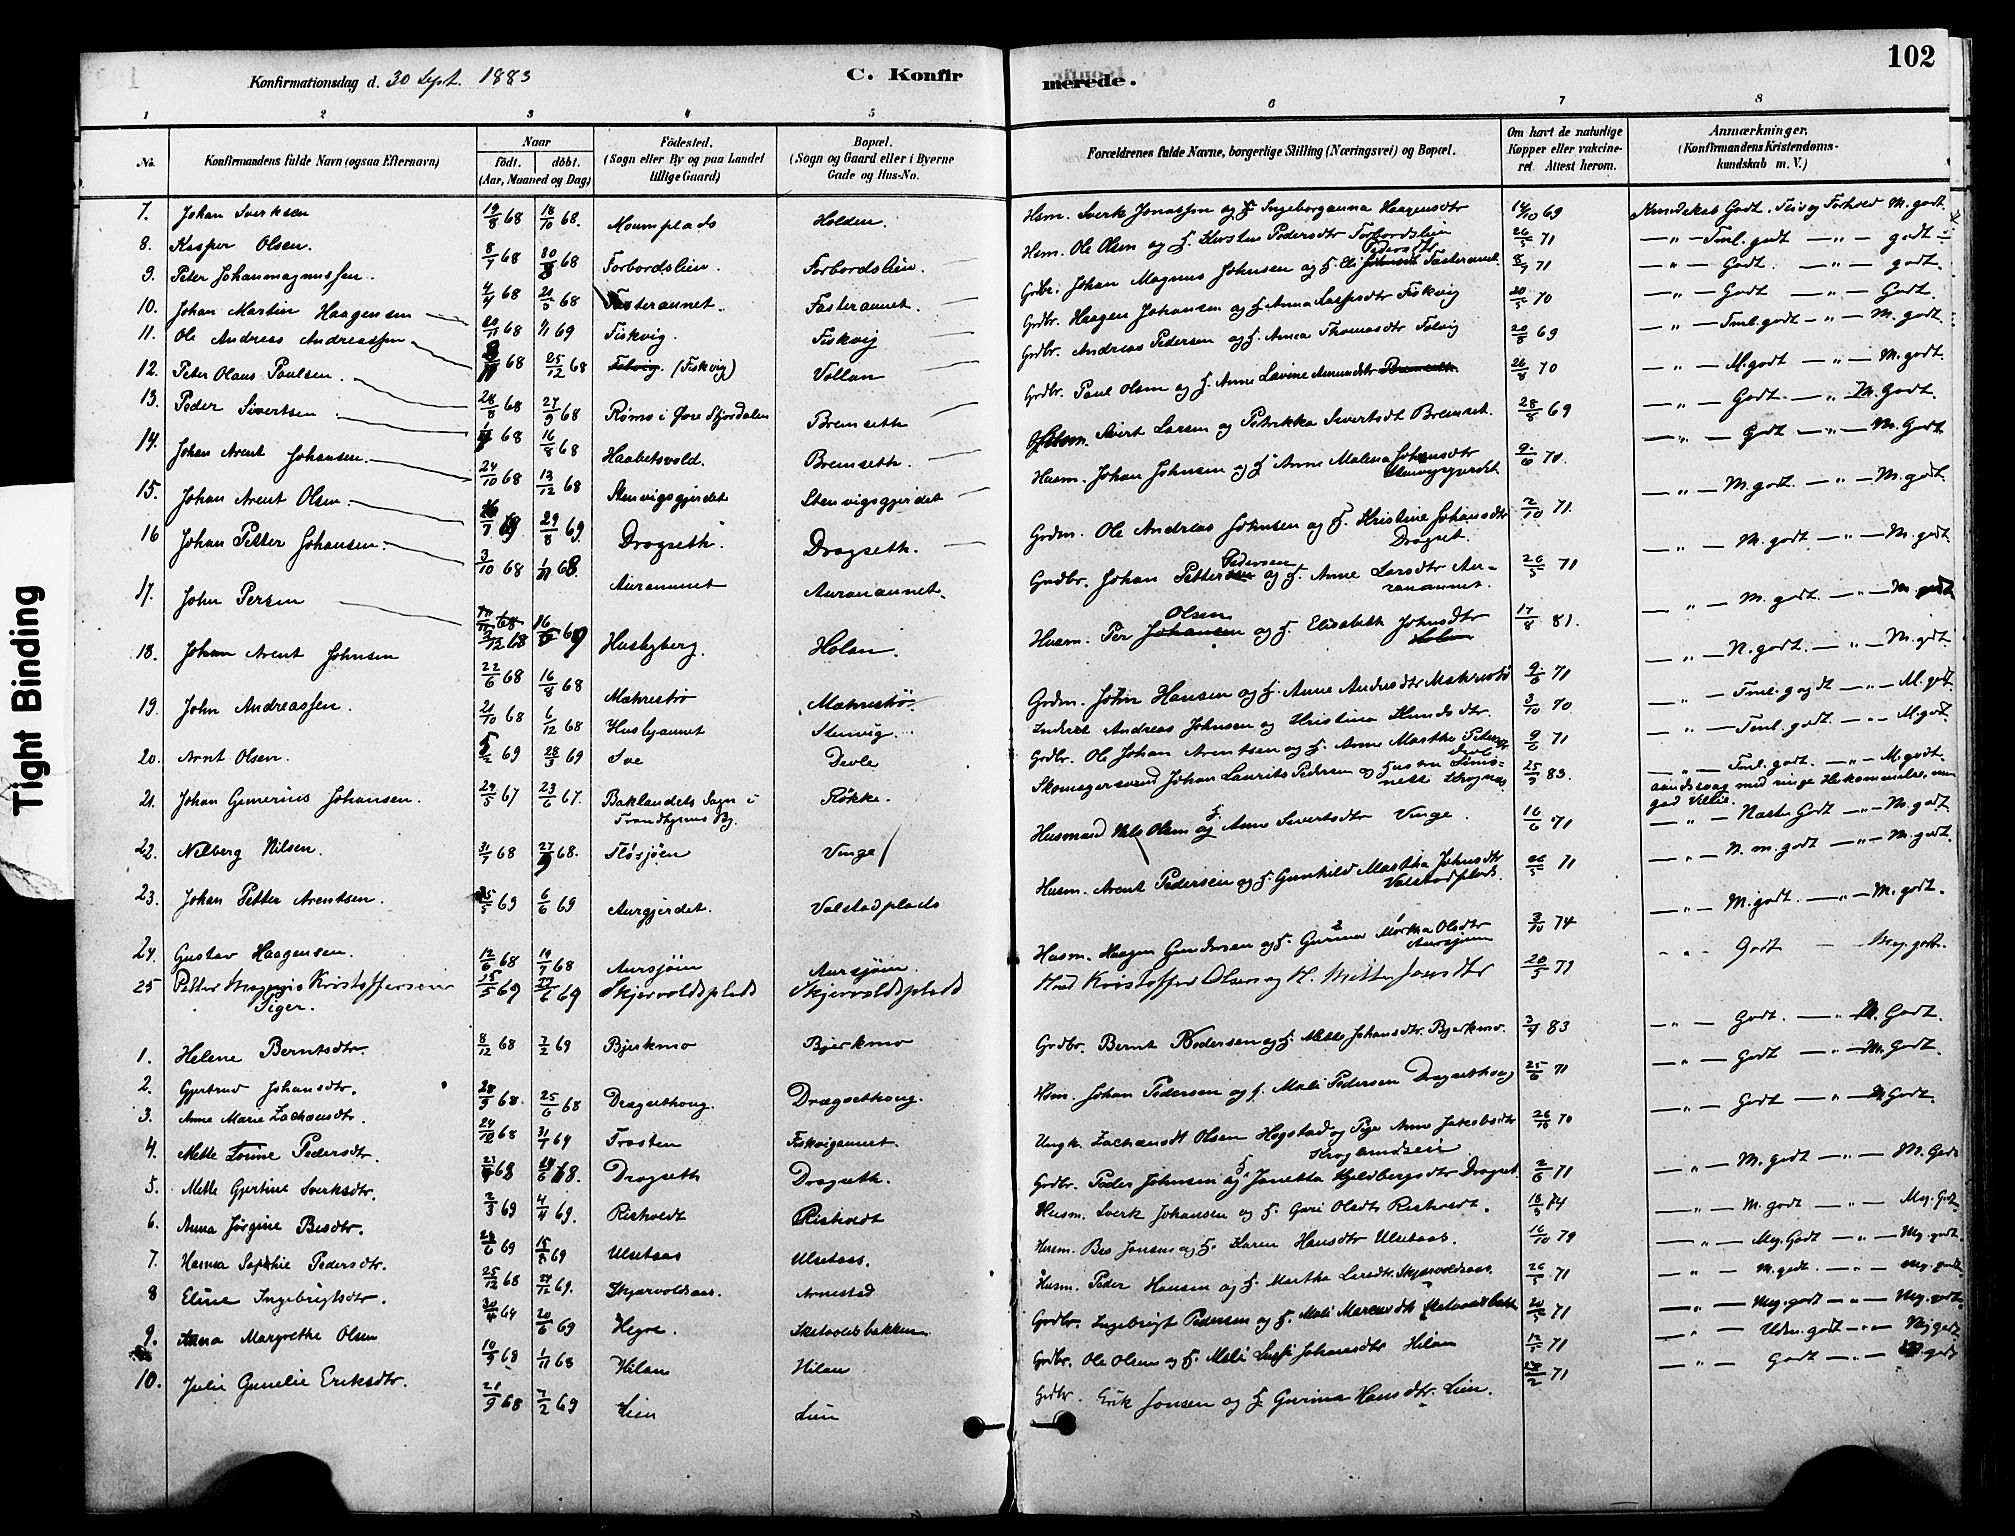 Tight Binding
102
Konfirmationsdag d. 30 Sept. 1883
C. Konfir
merede.
1 2 3 4 5 6 7 8
No.
Konfirmandens fulde Navn (ogsaa Efternavn)
Naar
födt. döbt.
(Aar, Maaned og Dag)
Födested.
(Sogn eller By og paa Landet
tillige Gaard)
Bopæl.
(Sogn og Gaard eller i Byerne
Gade og Hus-No.
Forældrenes fulde Navne, borgerlige Stilling (Næringsvei) og Bopæl.
Om havt de naturlige
Kopper eller vakcine-
ret. Attest herom.
Anmærkninger.
(Konfirmandens Kristendoms-
kundskab m. V.)
7. Johan Sverksen 19/8 68 18/10 68. Moumplads Holden Hsm. Sverk Jonassen og H. Ingeborganna Haagensdtr 14/10 69 Kundskab Godt. Flid og Forhold M. godt.
8. Kasper Olsen. 8/7 68 30/8 68 Forbordslien. Forbordslien. Hsm. Ole Olsen og H. Kirsten Pedersdtr Forbordslien 26/5 71 — " — Tml. godt — " — godt
9. Peter Johanmagnussen. 4/4 68 21/5 68 Fasteraunet. Fasteraunet. Grdbr. Johan Magnus Johnsen og H. Eli Pedersdtr Fasteraunet 8/9 71 — " — Godt. — " — godt.
10. Johan Martin Haagensen 20/11 68 1/1 69 Fiskvig. Fiskvig Grdbr. Haagen Johansen og H. Anna Larsdtr Fiskvig 20/5 70 — " — Godt — " — Godt.
11. Ole Andreas Andreassen 68 25/12 68 Folvig. (Fiskvig) Vollan Grdbr. Andreas Pedersen og H. Anna Thomasdtr Folvig 20/8 69 — " — Tml. godt — " — M. godt.
12. Peter Olaus Paulsen. 28/8 68 27/9 68 Römo i Øvre Stjördalen Bremseth Grdbr. Paul Olsen og H. Anne Lavine Amundsdtr 26/8 70 — " — M. godt — " — M. godt.
13. Peder Sivertsen 68 16/8 68 Haabetsvold. Bremseth. Sivert Larsen og Petrikka Sivertsdt Bremset. 28/8 69 — " — Godt — " — M. Godt.
14. Johan Arent Johansen. 24/10 68 13/12 68 Stenvigsgjerdet Stenvigsgjerdet Husm. Johan Johnsen og H. Anne Malena Johansdtr 9/6 71. — " — Godt — " — M. Godt
Stenvigsgjerdet
15. Johan Arent Olsen 69 29/8 69 Dragseth. Dragseth. Grdm. Ole Andreas Johnsen og H. Kristine Johansdtr 2/10 71. — " — M. godt. — " — M. godt.
Dragset.
16 Johan Petter Johansen. 3/10 68 1/11 68. Auraunet Auranaunet. Grdbr. Johan Petter Pedersen og H. Anne Larsdtr Au- 26/5 71 — " — M. godt — " — M. godt
ranaunet.
17. John Persen 3/12 68 16 69 Husbyberg. Holan. Husm. Per Olsen og H. Elisabeth Johnsdtr 17/8 81. — " — M. godt. — " — M. godt
18. Johan Arent Johnsen 22/6 68 16/8 68 Mæhreströ Mæhreströ Grdm. John Hansen og H. Anne Andersdtr Mæhreströ 9/6 71 — " — N. godt. — " — M. godt
19. John Andreassen. 21/10 68 6/12 68 Husbyaunet Stenvig. Inderst Andreas Johnsen og Kristina Knudsdtr. 3/10 70 — " — Tml. godt — " — M. godt
20. Arnt Olsen. 5/2 69 28/3 69 Sve Devle Grdbr. Ole Johan Arentsen og H. Anne Marthe Pedersdtr 9/6 71 — " — Tml. godt — " — M. godt
Devle
21. Johan Gemerius Johansen. 24/5 67 23/6 67. Baklandets Sogn i Rökke. Skomagersvend Johan Laurits Pedersen og Hustru 25/9 83. — " — Tml. godt. — " — M. godt.
Trondhjems By.
22. Nilberg Nilsen. 31/7 68 27/9 68. Flösjöen Vinge Husmand Nils Olsen og H. Anne Sivertsdtr Vinge. 16/6 71 — " — Næst. Godt — " — M. godt
23. Johan Petter Arentsen. 25/5 69 6/6 69 Aurgjerdet. Valstadplads Husm. Arent Pedersen og H. Gunhild Martha Johnsdtr 26/5 71 — " — N. m. godt — " — M. godt.
Valstadplads.
24. Gustav Haagensen. 12/6 68 19/7 68 Aursjöen Aursjöen. Husm. Haagen Gundersen og H. Gurine Mørtha Olsdtr 3/10 74 — " — M. godt. — " — M. godt.
25 Petter Kristoffersen 25/5 69 27/6 69 Skjervoldsplads Skjervoldsplads Hsd Kristoffer Olsen og H. Mette Jonsdtr 20/5 71 " " Godt — Meg. godt.
Piger.
1. Helene Berntsdtr. 8/12 68 7/2 69 Bjerkmo Bjerkmo Grdbr. Bernt Pedersen og H. Mette Johansdtr. Bjerkmo. 3/9 83 — " — Godt. — " — M. Godt.
2. Gjertrud Johansdtr. 68. 25/6 68 Dragsethoug. Dragsethoug. Hsm. Johan Pedersen og H. Mali Pedersen Dragsethoug 25/6 71 — " — Godt — " — M. Godt.
3. Anne Marie Zachausdtr. 24/12 68 31/1 69 Frosten Fiskvigaunet. Ungk. Zachausdt Olsen Hogstad og Pige Anne Jakobsdtr 26/10 70 — " — Godt — " — M Godt.
4. Mette Pedersdtr. 68 Dragseth Dragseth. Grdbr. Peder Johnsen og H. Janetta Kjeldbergsdtr Dragset. 2/6 71 — " — M. godt — " — M. Godt
5. Mette Gjertine Sverksdtr. 2/3 69 4/4 69. Ristvedt Ristvedt Husm. Sverk Johansen og H. Guri Olsdtr Ristvedt. 18/9 74 — " — M. godt — " — Meg. Godt
6. Anna Jørgine Besdtr. 28/6 69 15/8 69 Ulsetaas Ulsetaas. Husm. Bes Jonsen og H. Karen Hansdtr Ulsetaas. 16/10 79 — " — Meg. Godt — " — Meg. godt.
7. Hanna Sophie Pedersdtr. 25/12 68 69. Skjærvoldsaas. Arnestad Husm. Peder Hansen og H. Martha Larsdtr. Skjærvoldsaas. 26/5 71 — " — M. godt. — " — Meg. godt
8 Eline Ingebrigtsdtr. 30/4 69 20/6 69 Hegre. Sætvoldsbakken. Grdbr. Ingebrigt Pedersen og H. Mali Marcusdtr 20/5 71 — " — Meg. godt — " — Meg. godt.
9. Anna Margrethe Olsen 10/9 68 1/11 68 Hilan Hilan Grdbr. Ole Olsen og H. Mali Johansdtr Hilan 12/5 71 — " — Udm. godt — " — Meg godt
10. Julie Gunelie Eriksdtr. 21/9 68 7/2 69 Lien Lien Grdbr. Erik Jonsen og H. Gurina Hansdtr. Lien. 71 — " — Godt — " — godt